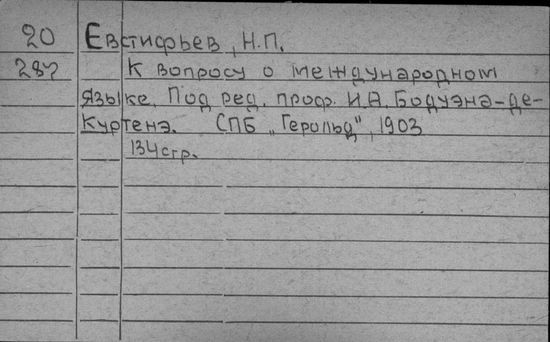 20 Евстифьев, Н.П.
287 К вопросу о международном
языке. Под ред. проф. И.А. Бодуэна-де-
Куртенэ. СПБ „Герольд", 1903
134 стр.